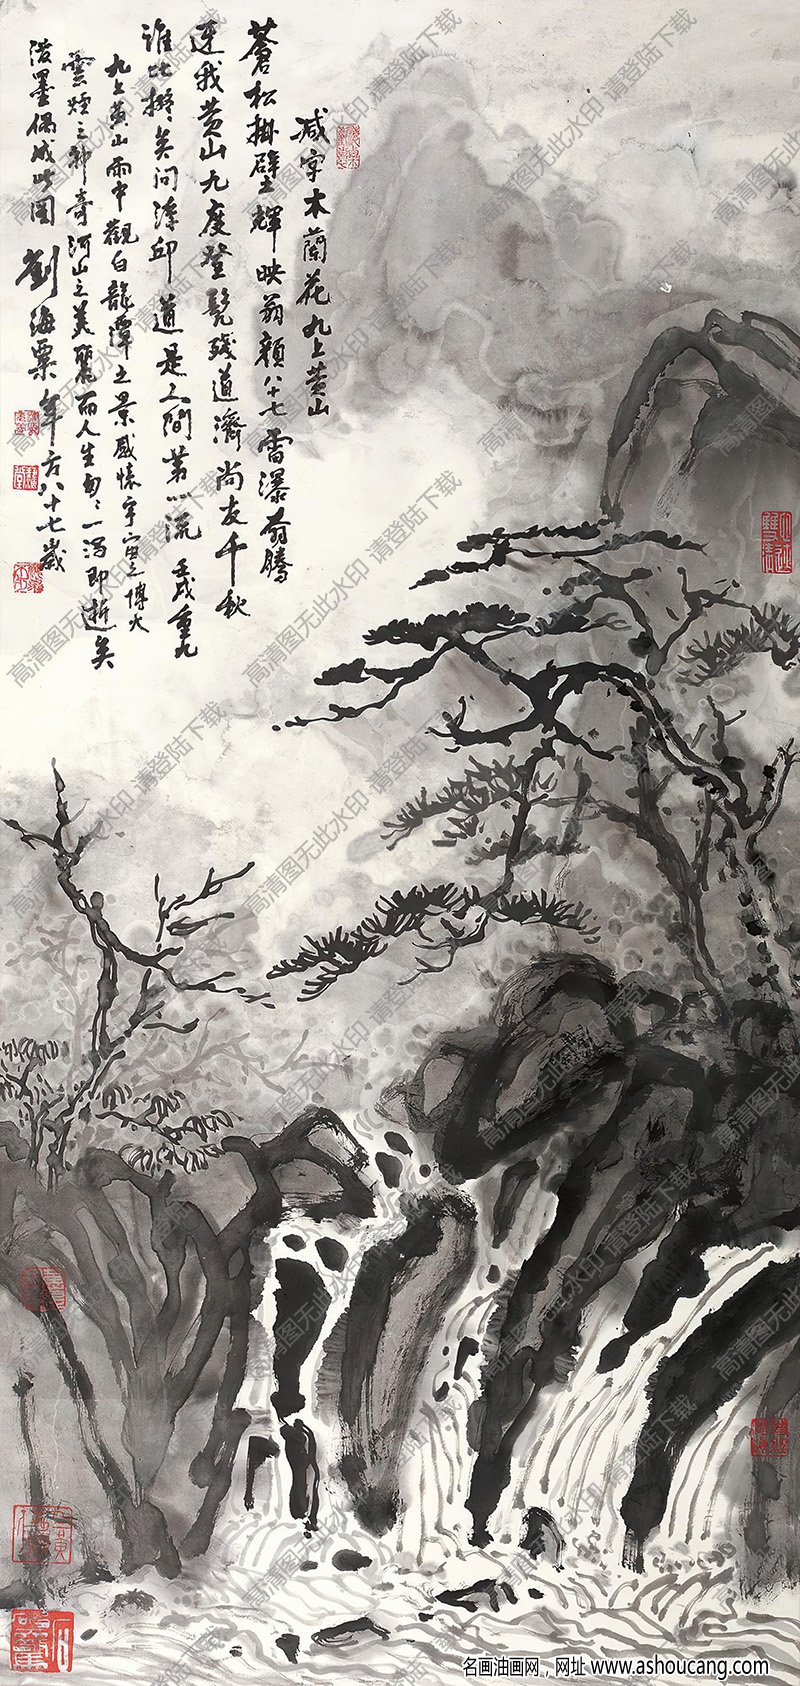 减字木蘭花 九上黄山
蒼松掛壁 輝映翁顏八十七 雷瀑奔騰
迓我黄山九度登 髡残道濟 尚友千秋
誰比擬 笑问浮邱 道是人間第一流 壬戌重九
九上黄山雨中觀白龍潭之景感怀宇宙之博大
雲烟之神奇河山之美麗而人生匆匆一瀉即逝矣
潑墨偶成此图 劉海粟年方八十七歲
高清图无此水印·请登陆下载
名画油画网，网址 www.ashoucang.com